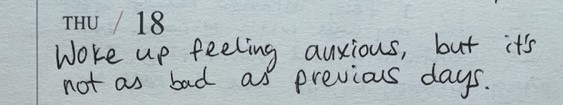 THU / 18
Woke up feeling anxious, but it's
not as bad as previous days.